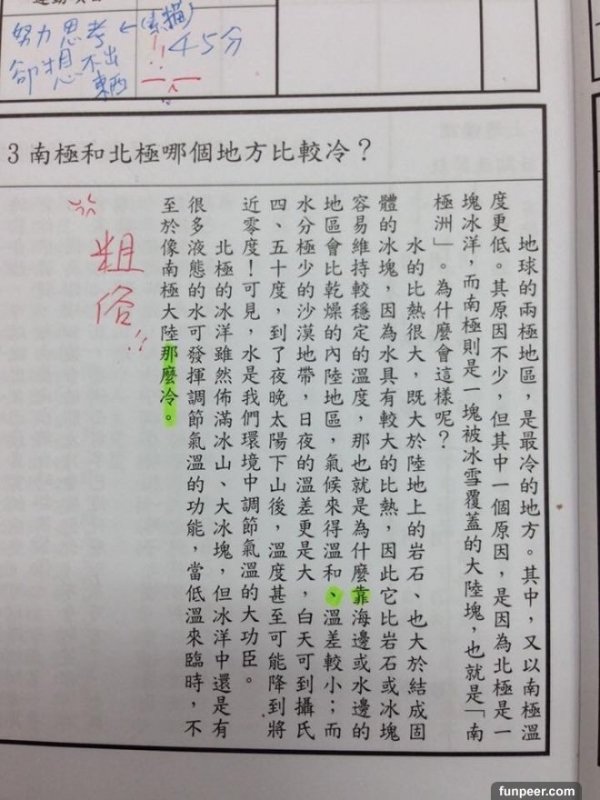 努力思考 ←(素描)
卻想不出
東西
!! 45分
3 南極和北極哪個地方比較冷？
地球的兩極地區，是最冷的地方。其中，又以南極溫
度更低。其原因不少，但其中一個原因，是因為北極是一
塊冰洋，而南極則是一塊被冰雪覆蓋的大陸塊，也就是「南
極洲」。為什麼會這樣呢？
水的比熱很大，既大於陸地上的岩石、也大於結成固
體的冰塊，因為水具有較大的比熱，因此它比岩石或冰塊
容易維持較穩定的溫度，那也就是為什麼靠海邊或水邊的
地區會比乾燥的內陸地區，氣候來得溫和、溫差較小；而
水分極少的沙漠地帶，日夜的溫差更是大，白天可到攝氏
四、五十度，到了夜晚太陽下山後，溫度甚至可能降到將
近零度！可見，水是我們環境中調節氣溫的大功臣。
北極的冰洋雖然佈滿冰山、大冰塊，但冰洋中還是有
很多液態的水可發揮調節氣溫的功能，當低溫來臨時，不
至於像南極大陸那麼冷。
粗俗!!
funpeer.com